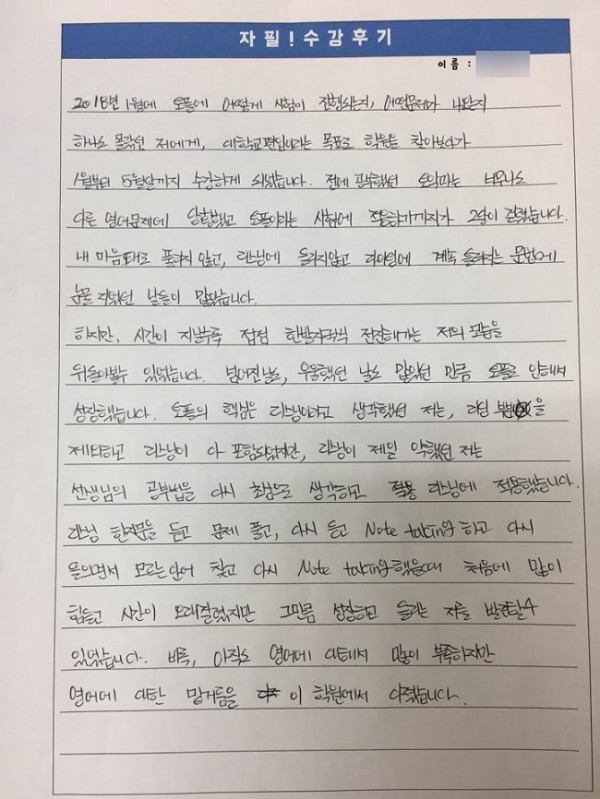 자필! 수강후기
이름 :
2018년 1월에 토플에 어떻게 시험이 진행되는지, 어떤문제가 나오는지
하나도 몰랐던 저에게, 대학교편입이라는 목표로 학원을 찾아보다가
1월부터 5월달까지 수강하게 되었습니다. 전에 공부했던 토익과는 너무나도
다른 영어문제에 당황했고 토플이라는 시험에 적응하기까지가 2달이 걸렸습니다.
내 마음대로 풀리지 않고, 리스닝에 들리지않고 라이팅에 계속 틀리는 문법에
눈물 지었던 날들이 많았습니다.
하지만, 시간이 지날수록 점점 한발자국씩 전진해가는 저의 모습을
뒤돌아볼수 있었습니다. 넘어진날도, 우울했던 날도 많았던 만큼 토플로 인해서
성장했습니다. 토플의 핵심은 리스닝이라고 생각했던 저는, 리딩 을
제외하고 리스닝이 다 포함되었지만, 리스닝이 제일 약했던 저는
선생님의 공부법을 다시 초심으로 생각하고 적용 리스닝에 적용했습니다.
리스닝 한지문을 듣고 문제 풀고, 다시 듣고 Note taking을 하고 다시
들으면서 모르는단어 찾고 다시 Note taking했을때 처음에 많이
힘들고 시간이 오래걸렸지만 그만큼 성장하고 들리는 저를 발견할수
있었습니다. 비록, 아직도 영어에 대해서 많이 부족하지만
영어에 대한 밑거름을 이 학원에서 다졌습니다.